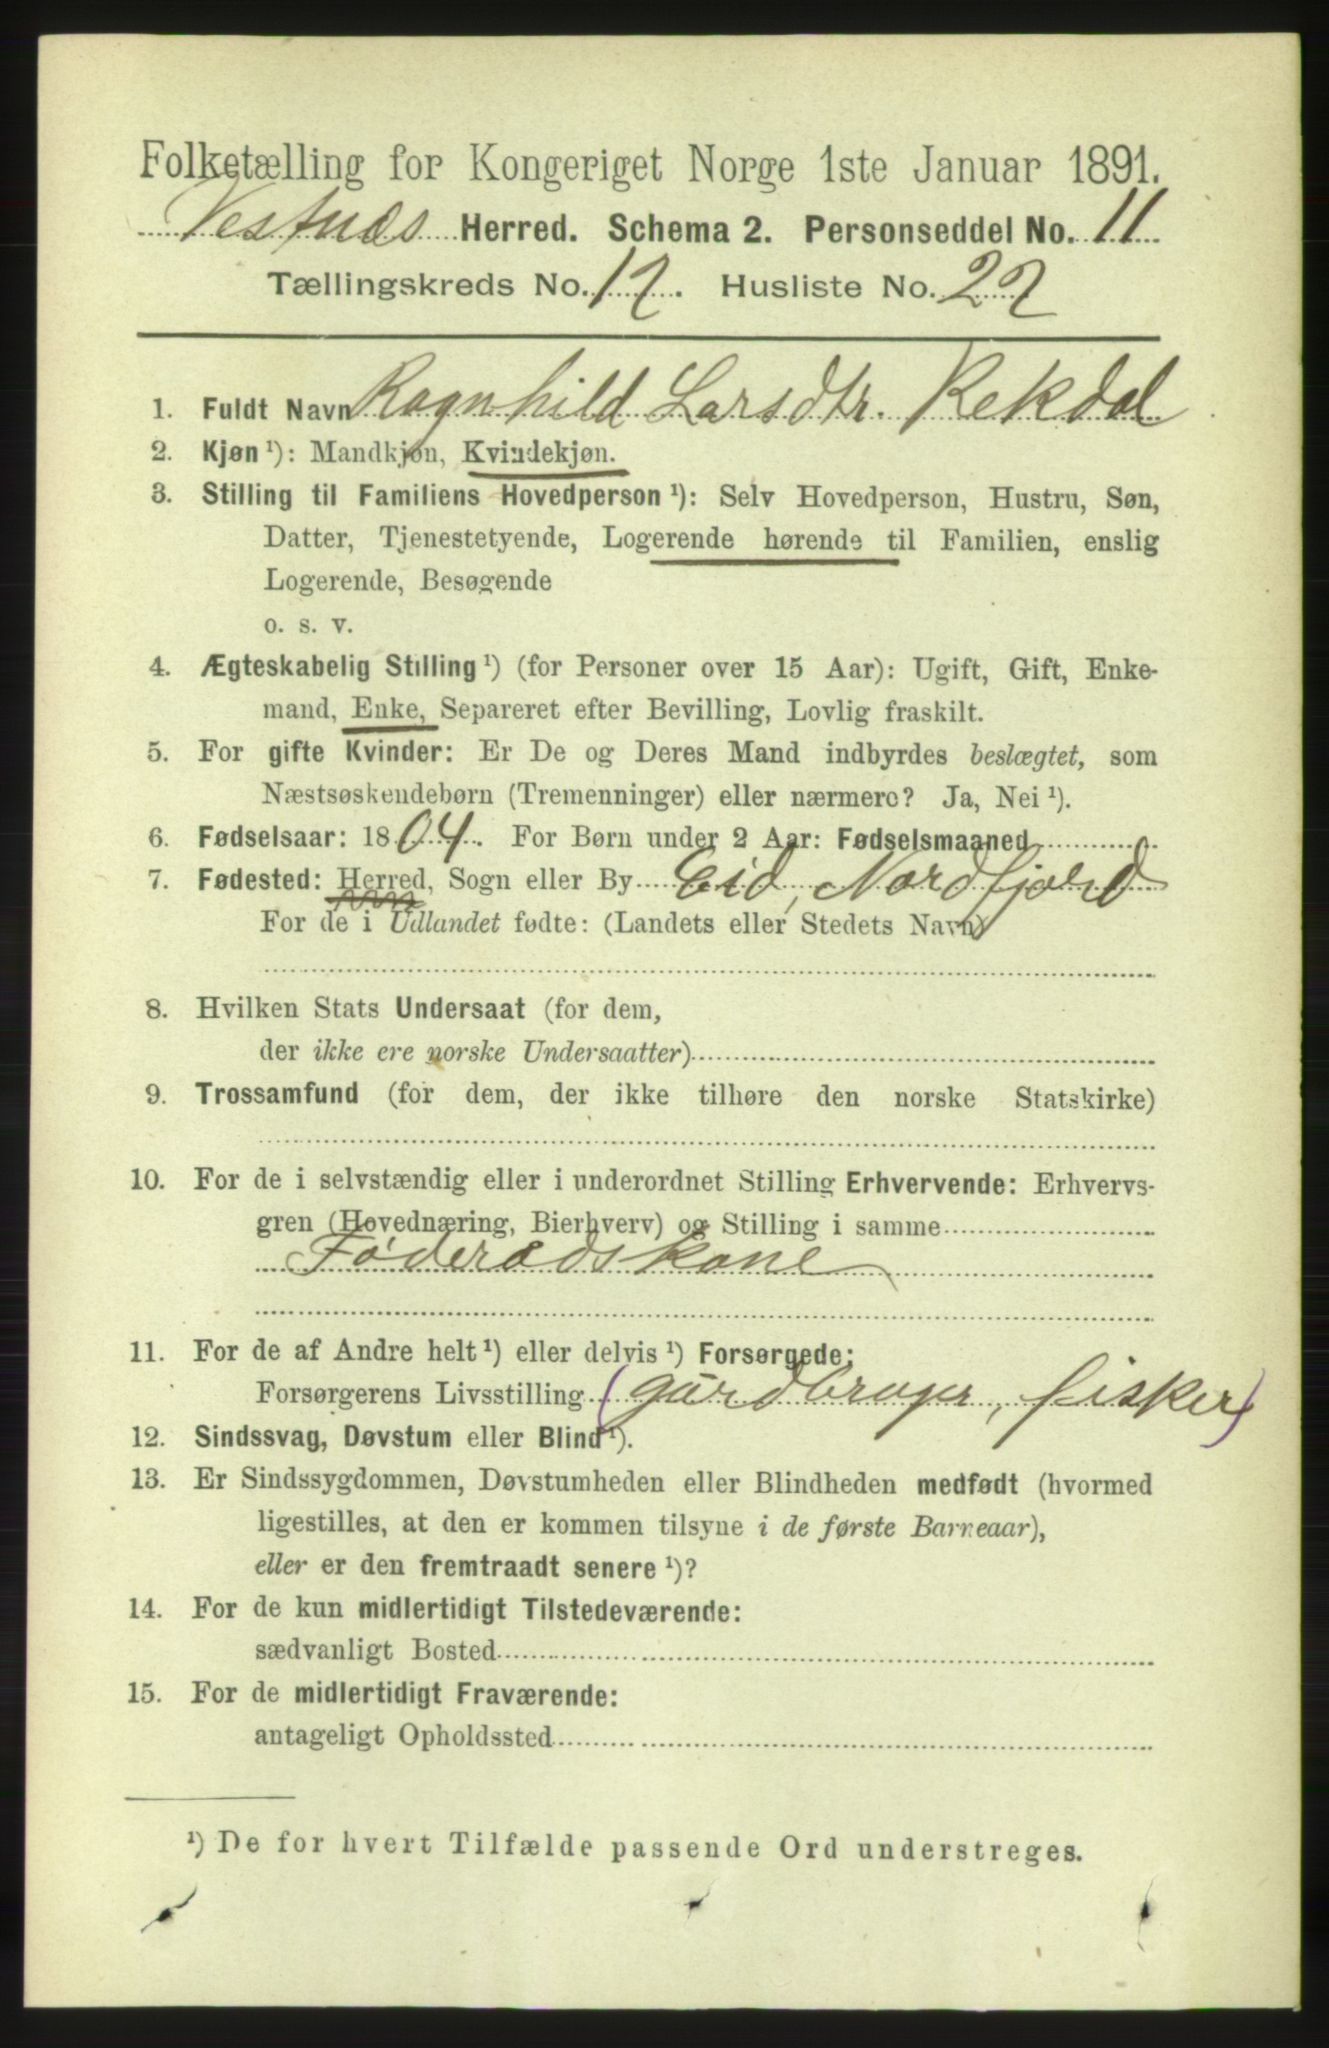 Folketælling for Kongeriget Norge 1ste Januar 1891.
Vestnæs Herred. Schema 2. Personseddel No. 11
Tællingskreds No. 12. Husliste No. 22
1. Fuldt Navn Ragnhild Larsdtr. Rekdal
2. Kjøn ¹): Mandkjøn, Kvindekjøn.
3. Stilling til Familiens Hovedperson ¹): Selv Hovedperson, Hustru, Søn,
Datter, Tjenestetyende, Logerende hørende til Familien, enslig
Logerende, Besøgende
o. s. v.
4. Ægteskabelig Stilling ¹) (for Personer over 15 Aar): Ugift, Gift, Enke-
mand, Enke, Separeret efter Bevilling, Lovlig fraskilt.
5. For gifte Kvinder: Er De og Deres Mand indbyrdes beslægtet, som
Næstsøskendebørn (Tremenninger) eller nærmere? Ja, Nei ¹).
6. Fødselsaar: 1804. For Børn under 2 Aar: Fødselsmaaned
7. Fødested: Herred, Sogn eller By Eid, Nordfjord
For de i Udlandet fødte: (Landets eller Stedets Navn)
8. Hvilken Stats Undersaat (for dem,
der ikke ere norske Undersaatter)
9. Trossamfund (for dem, der ikke tilhøre den norske Statskirke)
10. For de i selvstændig eller i underordnet Stilling Erhvervende: Erhvervs-
gren (Hovednæring, Bierhverv) og Stilling i samme
Føderadskone
11. For de af Andre helt ¹) eller delvis ¹) Forsørgede:
Forsørgerens Livsstilling (gårdbruger, fisker)
12. Sindssvag, Døvstum eller Blind ¹).
13. Er Sindssygdommen, Døvstumheden eller Blindheden medfødt (hvormed
ligestilles, at den er kommen tilsyne i de første Barneaar),
eller er den fremtraadt senere ¹)?
14. For de kun midlertidigt Tilstedeværende:
sædvanligt Bosted
15. For de midlertidigt Fraværende:
antageligt Opholdssted
¹) De for hvert Tilfælde passende Ord understreges.